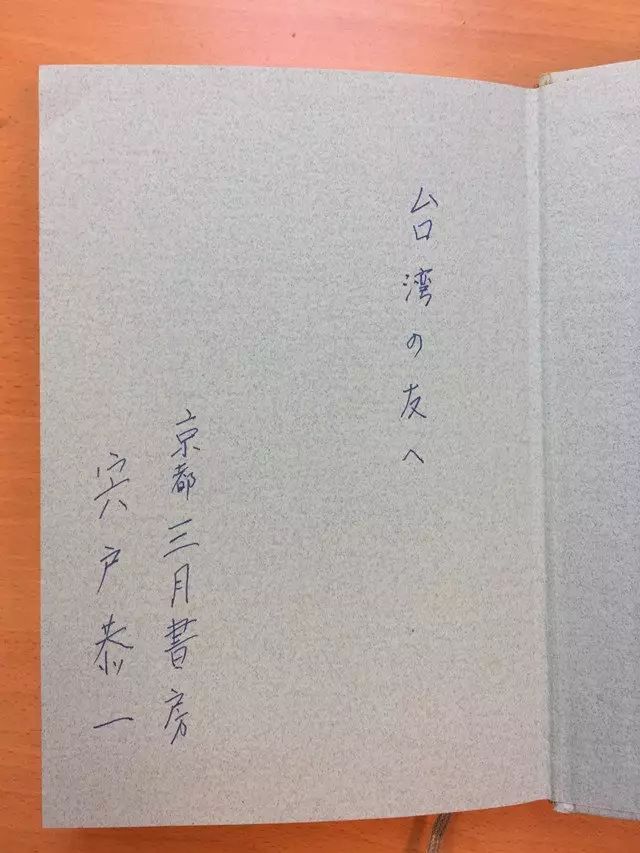 台湾の友へ
京都三月書房
宍戸恭一